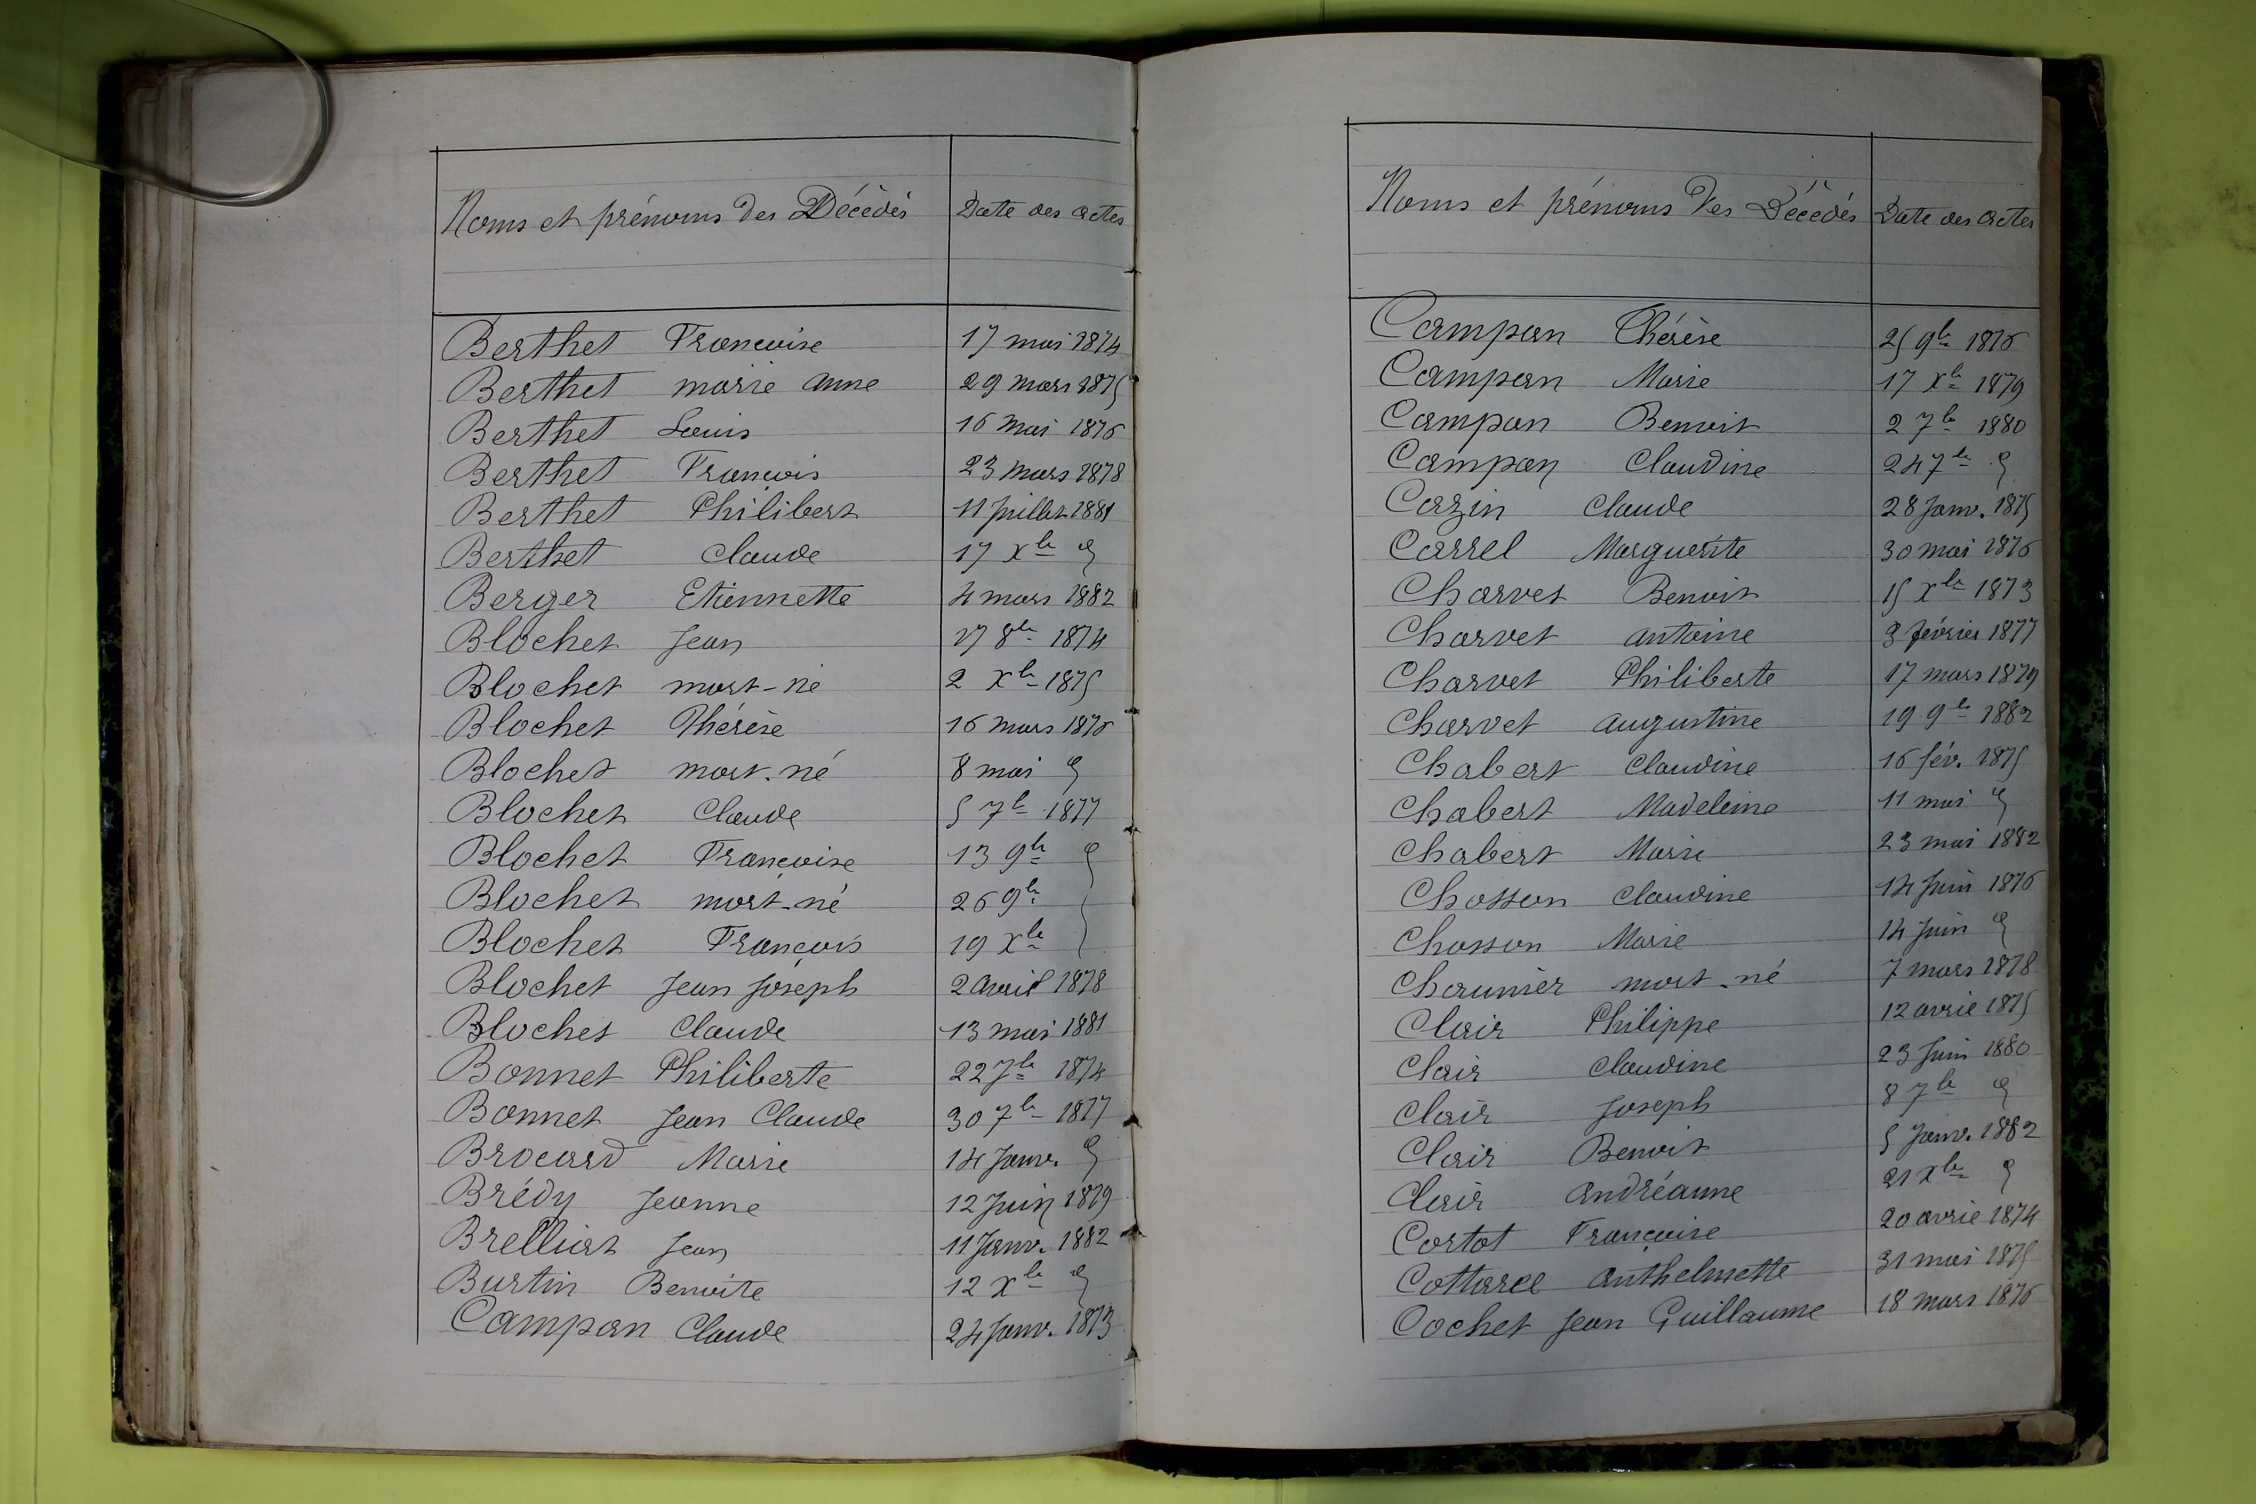 Noms et prénoms des Décédés Date des actes
Berthet Françoise 17 mai 1874
Berthet marie anne 29 mars 1875
Berthet Louis 16 mai 1876
Berthet François 23 mars 1878
Berthet Philibert 11 Juillet 1881
Berthet Claude 17 Xbre
Berger Etiennette 4 mars 1882
Blochet Jean 17 8bre 1874
Blochet mort-né 2 Xbre 1875
Blochet Thérèse 16 mars 1876
Blochet mort-né 8 mai
Blochet Claude 5 7bre 1877
Blochet Françoise 13 9bre
Blochet mort-né 26 9bre
Blochet François 19 Xbre
Blochet Jean Joseph 2 avril 1878
Blochet Claude 13 mai 1881
Bonnet Philiberte 22 7bre 1874
Bonnet Jean Claude 30 7bre 1877
Brocard Marie 14 Janv.
Brédy Jeanne 12 Juin 1879
Brelliat Jean 11 Janv. 1882
Burtin Benoite 12 Xbre
Campan Claude 24 Janv. 1873
Noms et prénoms des Décédés Date des actes
Campan Thérèse 25 9bre 1876
Campan Marie 17 Xbre 1879
Campan Benoit 2 7bre 1880
Campan Claudine 24 7bre
Cazin Claude 28 Janv. 1875
Carrel Marguerite 30 mai 1876
Charvet Benoit 15 Xbre 1873
Charvet antoine 3 février 1877
Charvet Philiberte 17 mars 1879
Charvet augustine 19 9bre 1882
Chabert Claudine 16 fév. 1875
Chabert Madeleine 11 mai
Chabert Marie 23 mai 1882
Chosson Claudine 14 Juin 1876
Chosson Marie 14 Juin
Chaunier mort-né 7 mars 1878
Clair Philippe 12 avril 1875
Clair Claudine 23 Juin 1880
Clair Joseph 8 7bre
Clair Benoit 5 Janv. 1882
Clair andréanne 21 Xbre
Cortot Françoise 20 avril 1874
Cottarel anthelmette 31 mai 1875
Cochet Jean Guillaume 18 mars 1876